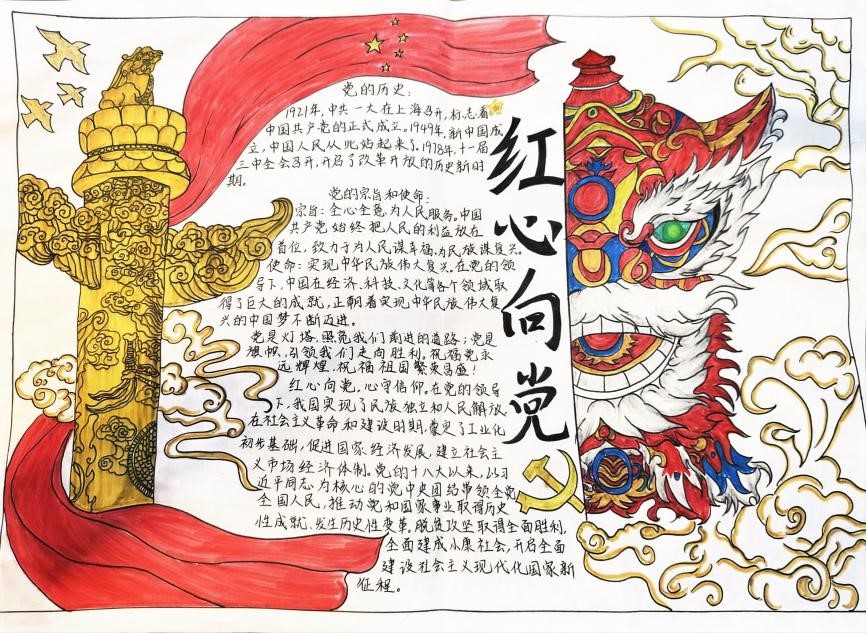 党的历史:
1921年,中共一大在上海召开,标志着
中国共产党的正式成立。1949年,新中国成
立,中国人民从此站起来了。1978年,十一届
三中全会召开,开启了改革开放的历史新时
期。
党的宗旨和使命:
宗旨:全心全意为人民服务。中国
共产党始终把人民的利益放在
首位,致力于为人民谋幸福,为民族谋复兴。
使命:实现中华民族伟大复兴。在党的领
导下,中国在经济、科技、文化等各个领域取
得了巨大的成就,正朝着实现中华民族伟大复
兴的中国梦不断迈进。
党是灯塔,照亮我们前进的道路;党是
旗帜,引领我们走向胜利。祝福党永
远辉煌,祝福祖国繁荣昌盛!
红心向党,心守信仰。在党的领导
下,我国实现了民族独立和人民解放
在社会主义革命和建设时期,奠定了工业化
初步基础,促进国家经济发展,建立社会主
义市场经济体制。党的十八大以来,以习
近平同志为核心的党中央团结带领全党
全国人民,推动党和国家事业取得历史
性成就、发生历史性变革。脱贫攻坚取得全面胜利,
全面建成小康社会,开启全面
建设社会主义现代化国家新
征程。
红心向党